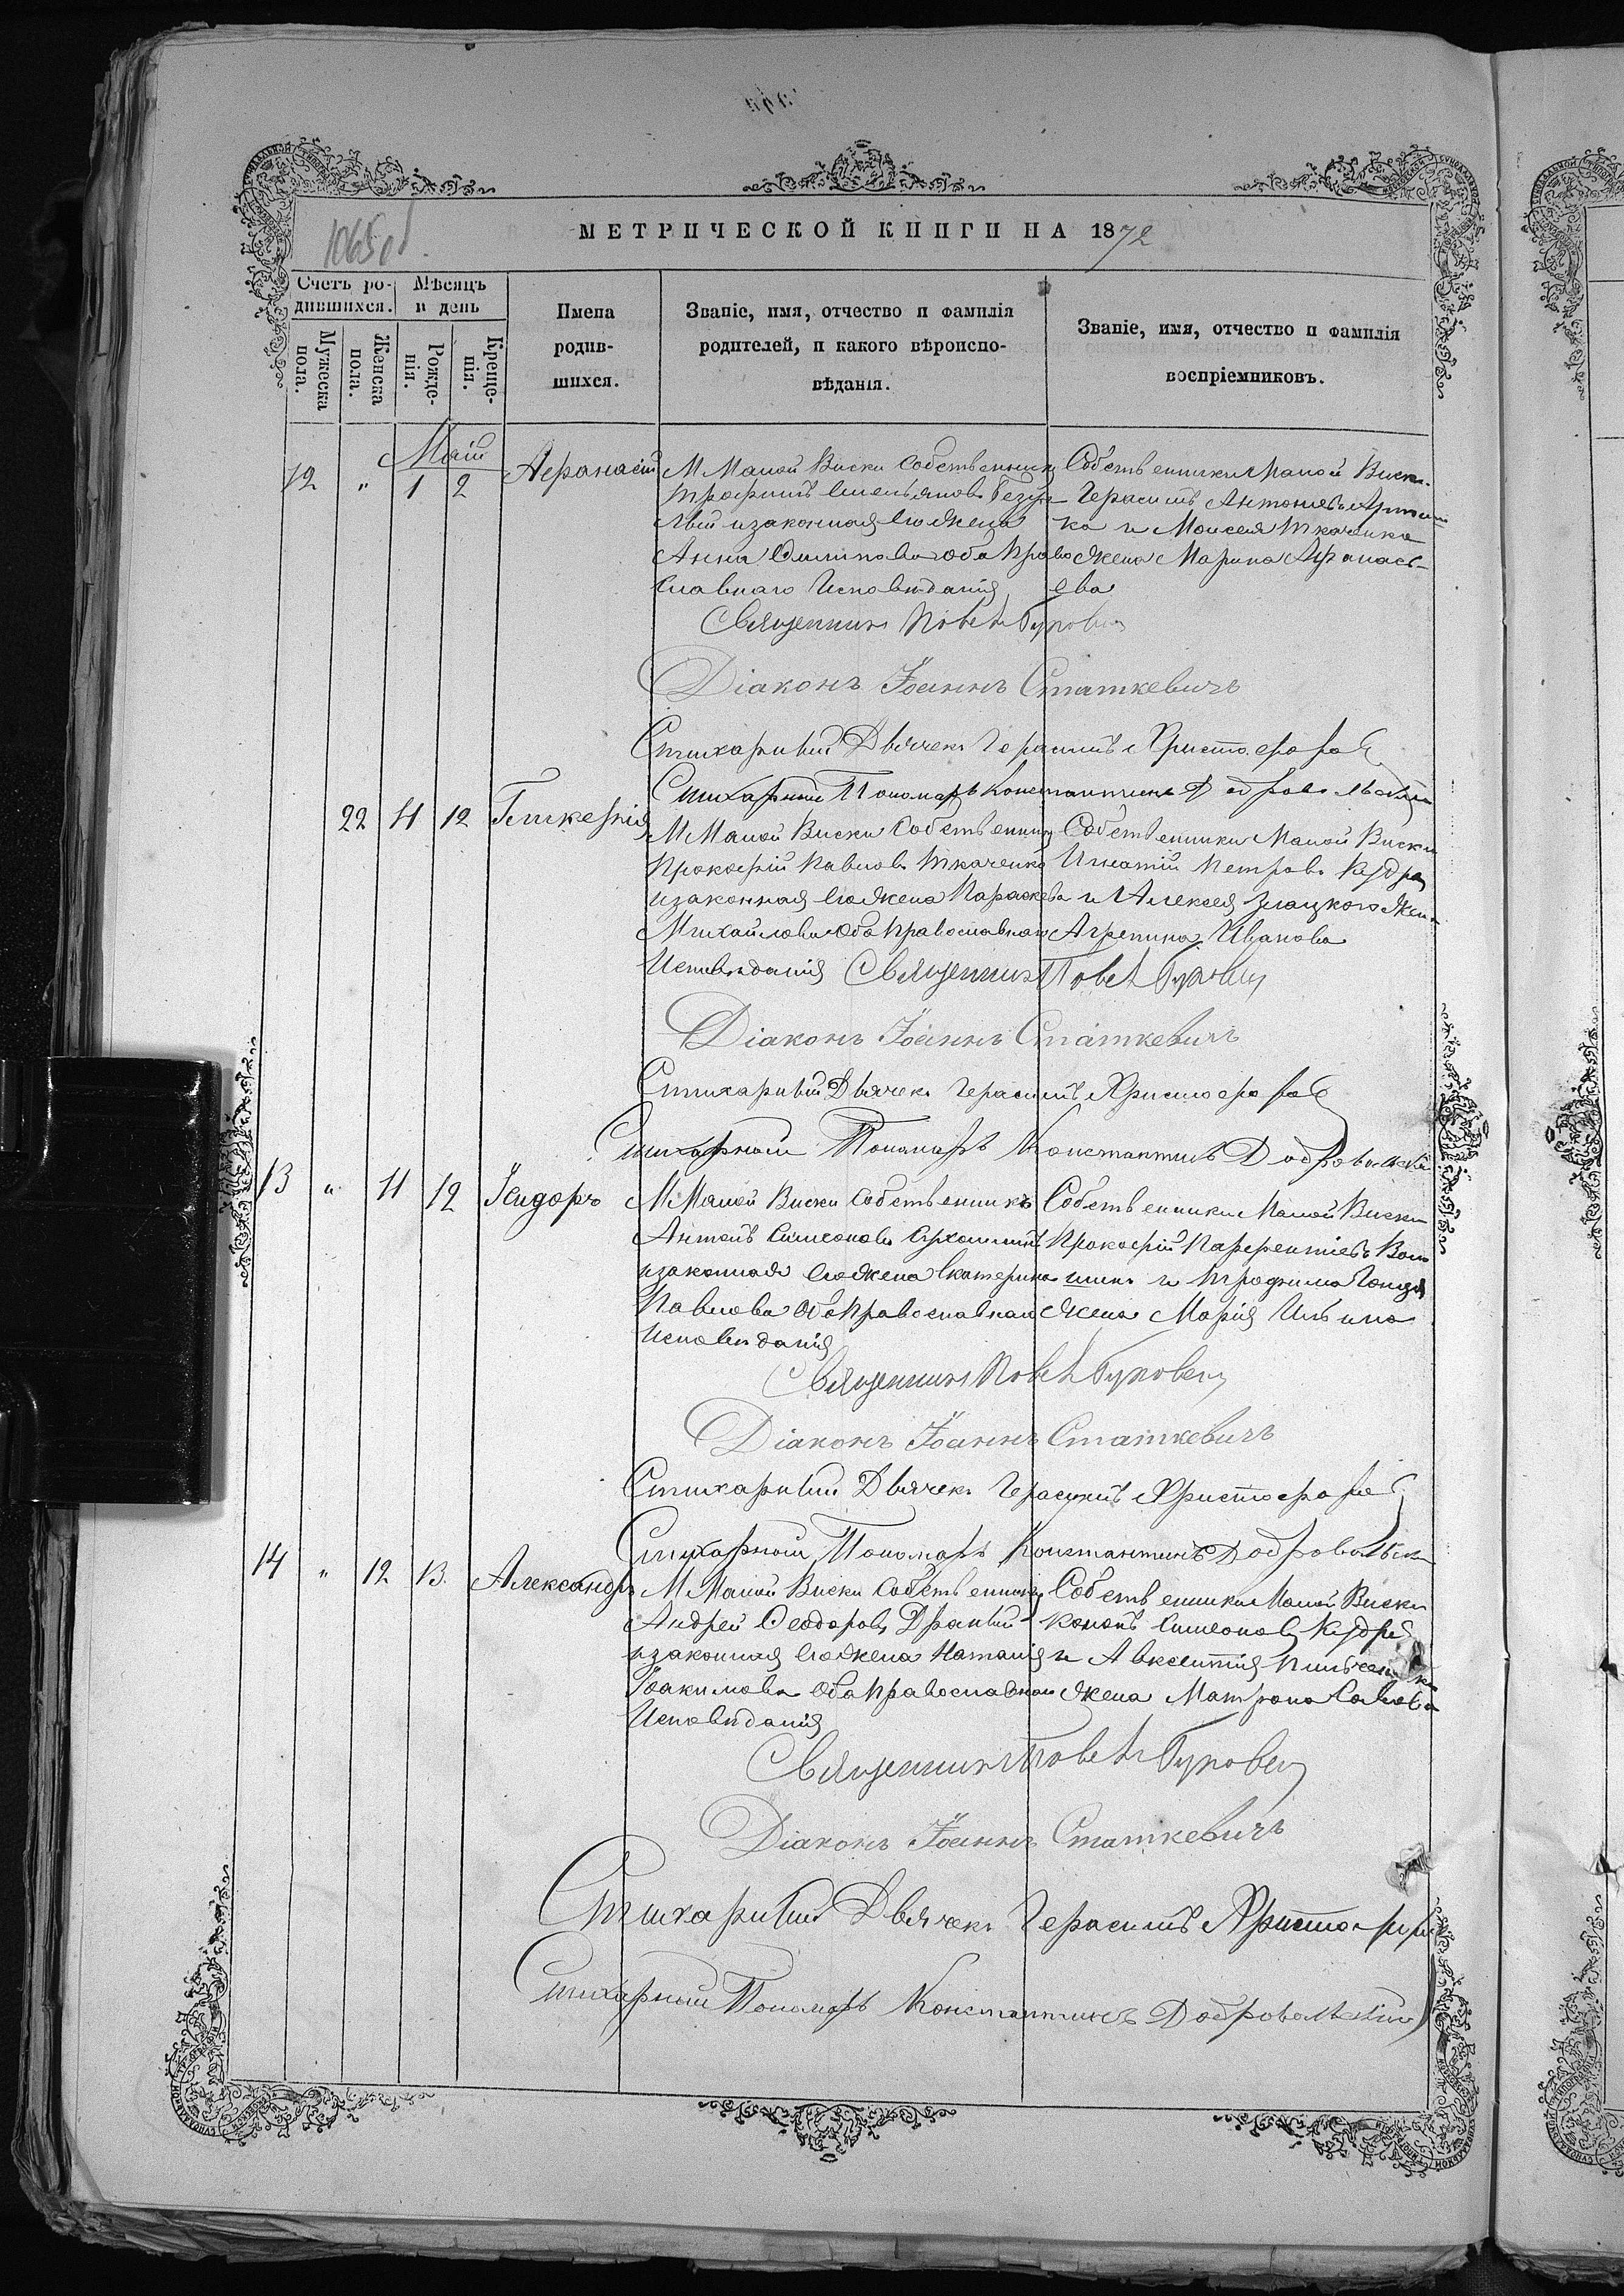 1065 об
МЕТРИЧЕСКОЙ КНИГИ НА 1872
Счетъ родившихся.
Мѣсяцъ и день
Мужеска пола.
Женска пола.
Рожденія.
Крещенія.
Имена
родив-
шихся.
Званіе, имя, отчество и фамилія
родителей, и какого вѣроиспо-
вѣданія.
Званіе, имя, отчество и фамилія
воспріемниковъ.
Маій
12 " 1 2 Афанасій
М Малой Виски Собственникъ
Трофимъ Емельяновъ
и законная его жена
Анна Филипова оба Право
славнаго Исповѣданія
Собственники Малой Виски
Герасимъ Антоніевъ
ка и Моисея Ткаченка
жена Марина Афанась-
ева
Священникъ Павелъ Туровецъ
Діаконъ Іоаннъ Статкевичъ
Стихарный Дьячекъ Герасимъ Христофоровъ
Стихарный Пономарь Константинъ Добровольскій
22 11 12 Гликерія
М Малой Виски Собственникъ
Прокофій Павловъ Ткаченко
и законная его жена Параскева
Михайлова оба православнаго
Исповѣданія
Собственники Малой Виски
Игнатій Петровъ Кудря
и Алексея Злацкого жена
Агрепина Иванова
Священникъ Павелъ Туровецъ
Діаконъ Іоаннъ Статкевичъ
Стихарный Дьячекъ Герасимъ Христофоровъ
Стихарный Пономарь Константинъ Добровольскій
13 " 11 12 Ісидоръ
М Малой Виски Собственникъ
Антонъ Симеоновъ
и законная его жена Екатерина
Павлова оба православнаго
Исповѣданія
Собственники Малой Виски
Прокофій Парфентіевъ
шинъ и Трофима Гонца
жена Марія Ильина
Священникъ Павелъ Туровецъ
Діаконъ Іоаннъ Статкевичъ
Стихарный Дьячекъ Герасимъ Христофоровъ
Стихарный Пономарь Константинъ Добровольскій
14 " 12 13. Александръ
М Малой Виски Собственникъ
Андрей Ѳеодоровъ Драный
и законная его жена Наталія
Іоакимова оба православнаго
Исповѣданія
Собственники Малой Виски
Кононъ Симеоновъ Кудря
и Авксентія Пильченка
жена Матрона Савова
Священникъ Павелъ Туровецъ
Діаконъ Іоаннъ Статкевичъ
Стихарный Дьячекъ Герасимъ Христофоровъ
Стихарный Пономарь Константинъ Добровольскій